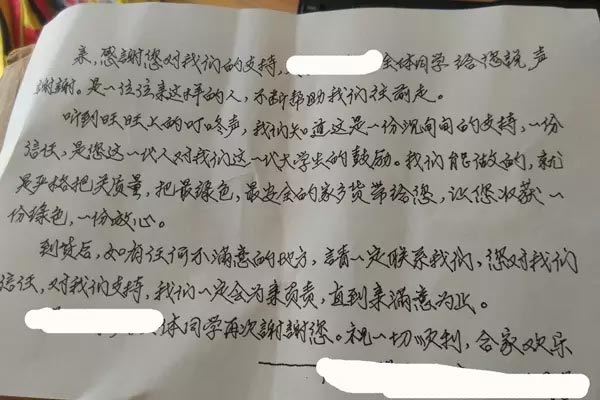 亲,感謝您对我们的支持,
全体同学给您說声
謝謝。是一位位亲这样的人,不断帮助我们往前走。
听到旺旺上的叮咚声,我们知道这是一份沉甸甸的支持,一份
信任,是您这一代人对我们这一代大学生的鼓励。我们能做的,就
是严格把关质量,把最绿色,最安全的家乡货带给您,让您收获一
份绿色,一份放心。
到货后,如有任何不满意的地方,請一定联系我们,您对我们
信任,对我们支持,我们一定会为亲负责,直到亲满意为止。
体同学再次謝謝您。祝一切顺利,合家欢乐